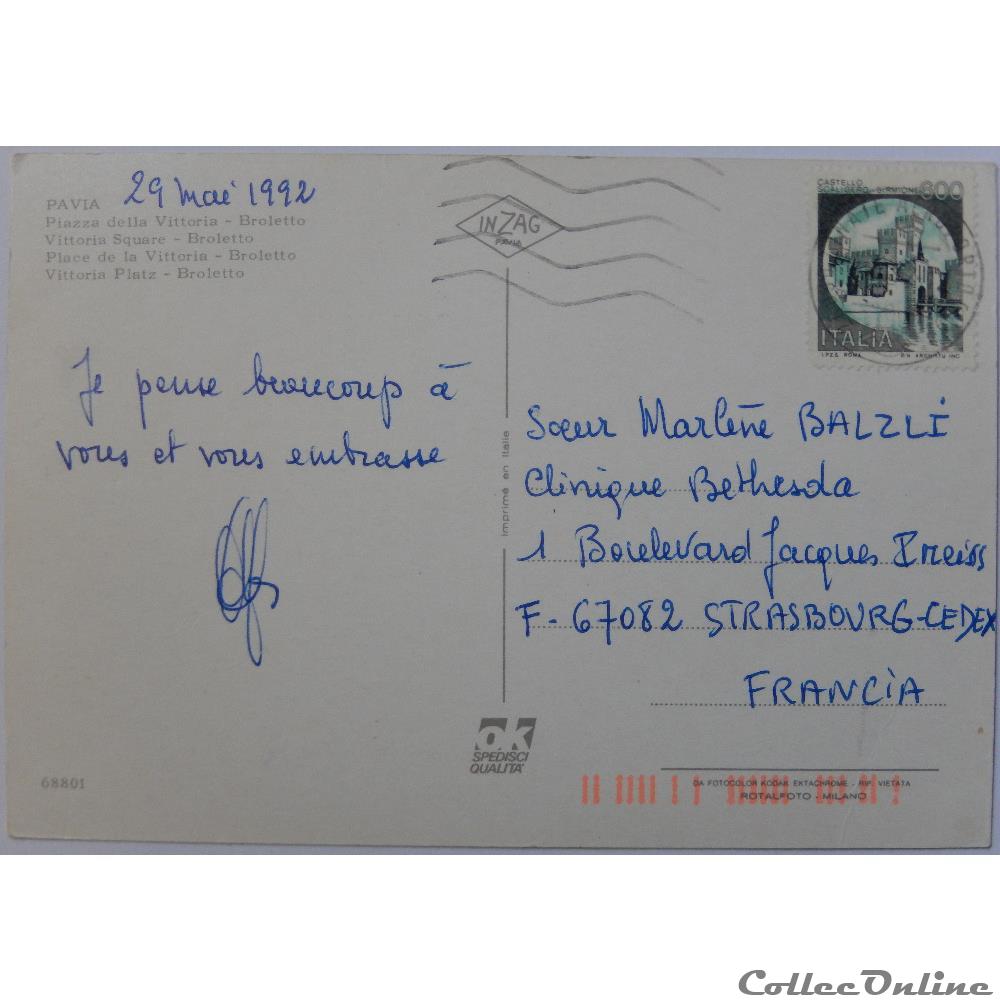 PAVIA 29 mai 1992
Piazza della Vittoria - Broletto
Vittoria Square - Broletto
Place de la Vittoria - Broletto
Vittoria Platz - Broletto
INZAG
PAVIA
CASTELLO
SCALIGERO-SIRMIONE 600
ITALIA
I.P.Z.S. ROMA
Je pense beaucoup à
vous et vous embrasse
Imprimé en Italie
Sœur Marlène BALZLI
Clinique Bethesda
1 Boulevard Jacques Preiss
F-67082 STRASBOURG-CEDEX
FRANCIA
ok
SPEDISCI
QUALITA'
68801
DA FOTOCOLOR KODAK EKTACHROME - RIP. VIETATA
ROTALFOTO - MILANO
CollecOnline